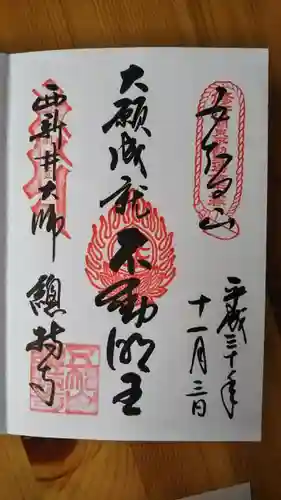 五智山
平成三十年
十一月三日
大願成就不動明王
西新井大師
總持寺